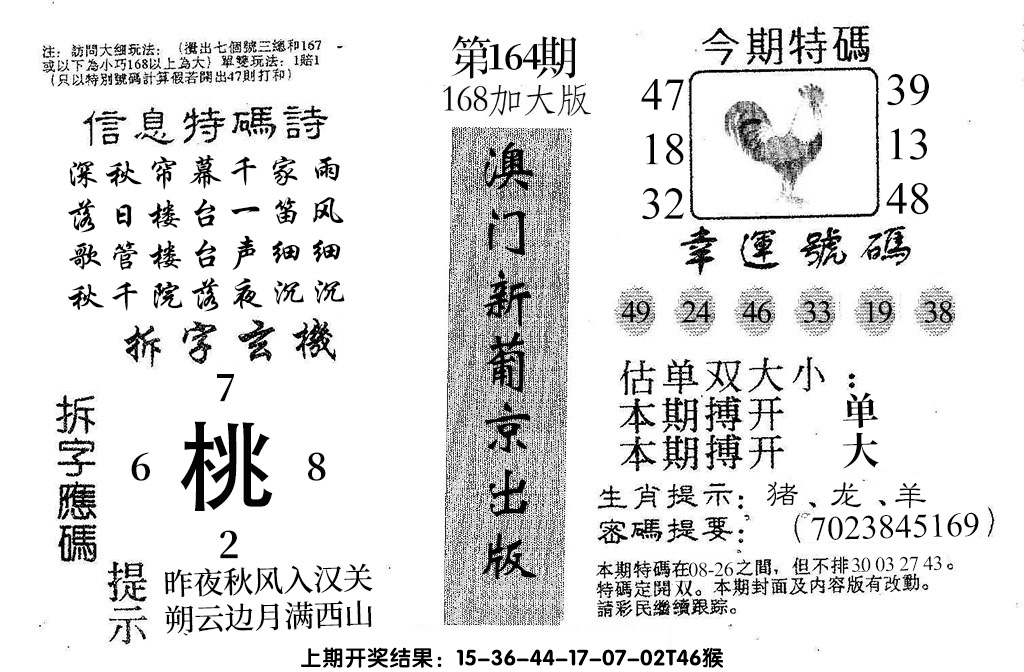 注：訪問大细玩法：（攪出七個號三總和167
或以下為小巧168以上為大）單雙玩法：1賠1
（只以特別號碼計算假若開出47則打和）
信息特碼詩
深秋帘幕千家雨
落日楼台一笛风
歌管楼台声细细
秋千院落夜沉沉
拆字玄機
拆字應碼
7
6 桃 8
2
提示
昨夜秋风入汉关
朔云边月满西山
第164期
168加大版
澳门新葡京出版
今期特碼
47 39
18 13
32 48
幸運號碼
49 24 46 33 19 38
估单双大小：
本期搏开 单
本期搏开 大
生肖提示：猪、龙、羊
密碼提要：（7023845169）
本期特碼在08-26之間，但不排30 03 27 43。
特碼定開双。本期封面及内容版有改動。
請彩民繼續跟踪。
上期开奖结果：15-36-44-17-07-02T46猴